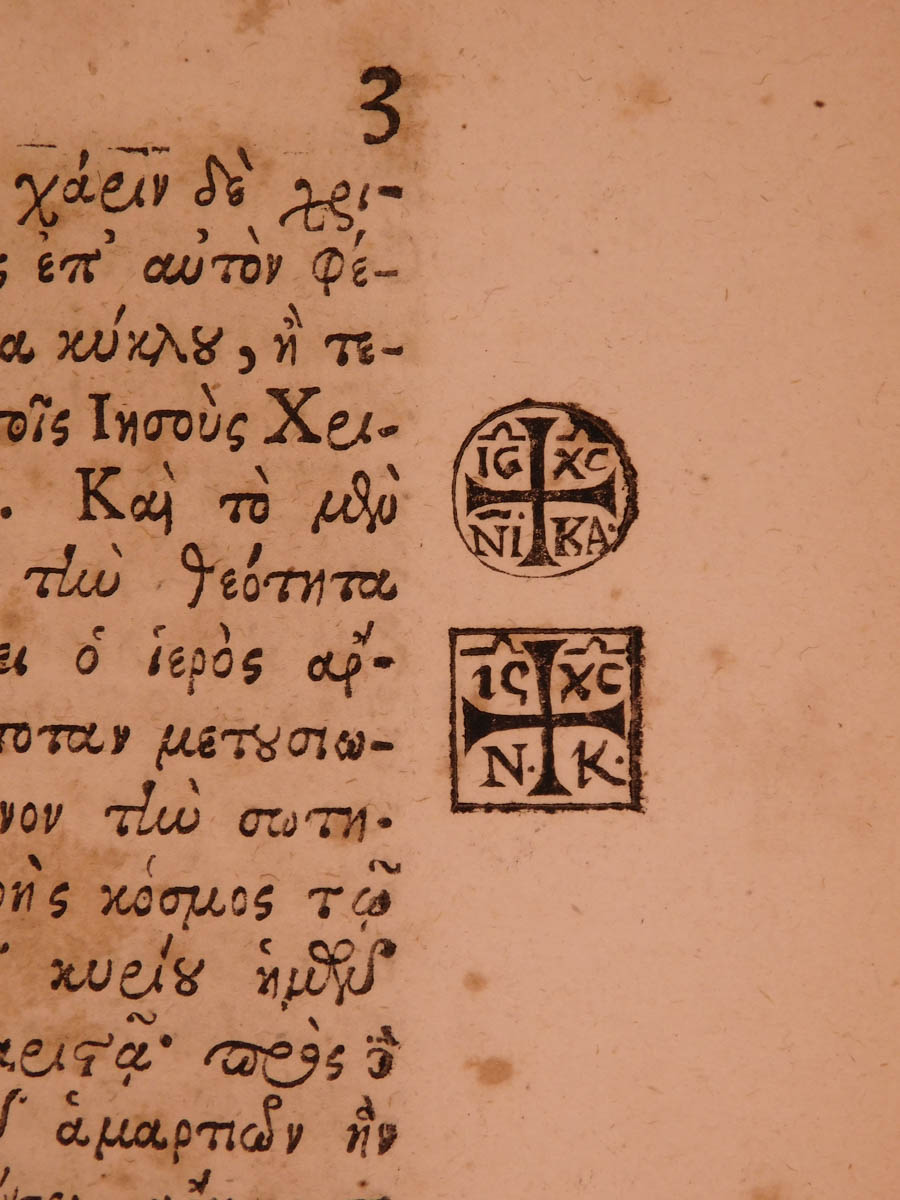 3
χάριν δὲ χρι-
ς ἐπ' αὐτὸν φέ-
α κύκλου, ἢ τε-
τοῖς Ἰησοὺς Χρι-
. Καὶ τὸ μὲν
τὴν θεότητα
ει ὁ ἱερὸς αρ-
ποταν μετουσιω-
νον τὴν σωτη-
ρῆς κόσμος τῷ
κυρίου ἡμῶν
αριστᾷ· πρὸς
ἁμαρτιῶν ἢν
ΙϹ ΧϹ
ΝΙ ΚΑ·
Ις ΧϹ
Ν· Κ·